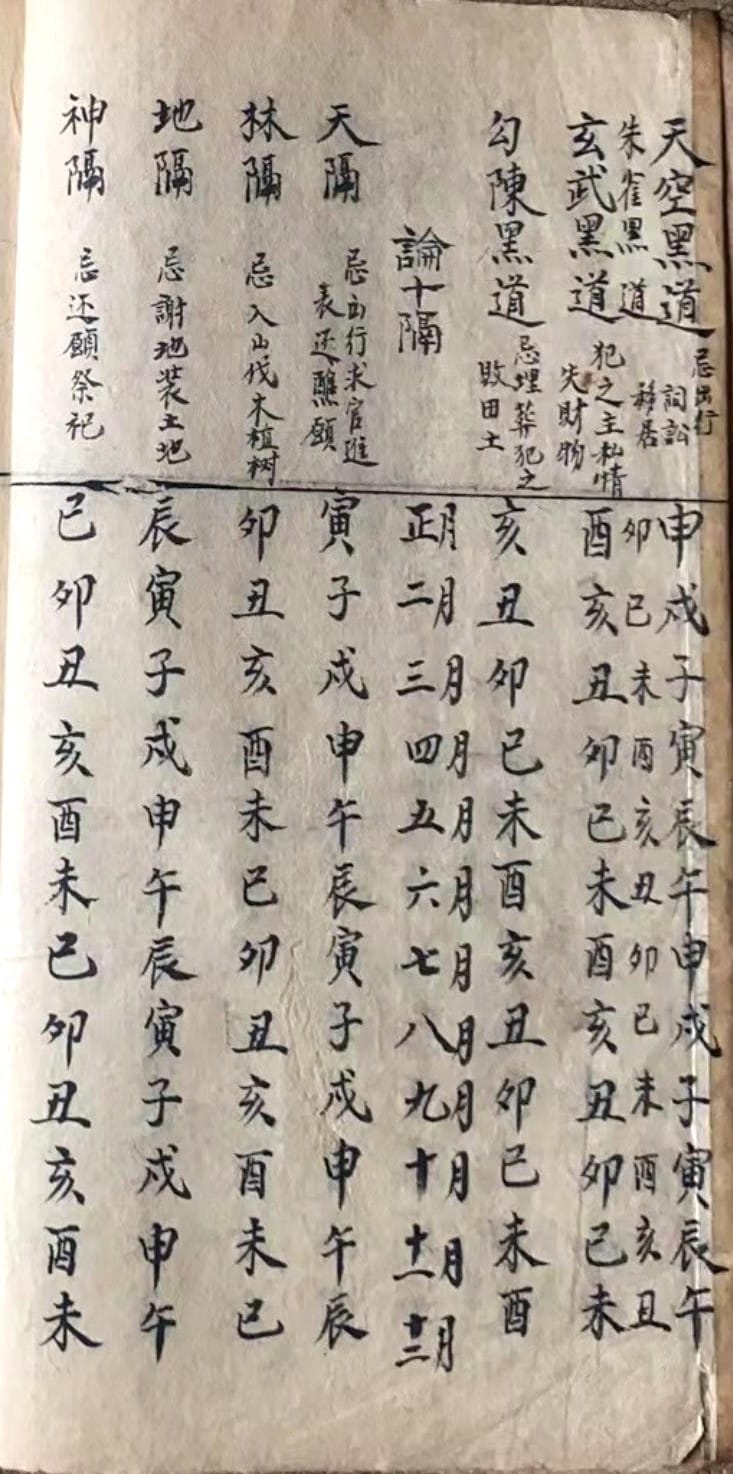 天空黑道 忌出行 申戌子寅辰午申戌子寅辰午
朱雀黑道 詞訟移居 卯巳未酉亥丑卯巳未酉亥丑
玄武黑道 犯之主私情失財物 酉亥丑卯巳未酉亥丑卯巳未
勾陳黑道 忌埋葬犯之敗田土 亥丑卯巳未酉亥丑卯巳未酉
論十隔 正月二月三月四月五月六月七月八月九月十月十一月十二月
天隔 忌出行求官進表还醮願 寅子戌申午辰寅子戌申午辰
林隔 忌入山伐木植树 卯丑亥酉未巳卯丑亥酉未巳
地隔 忌謝地装土地 辰寅子戌申午辰寅子戌申午
神隔 忌还願祭祀 巳卯丑亥酉未巳卯丑亥酉未